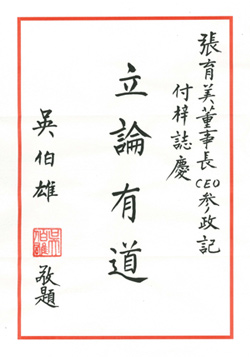 張育美董事長CEO參政記
付梓誌慶
立論有道
吳伯雄
敬題
吳伯雄